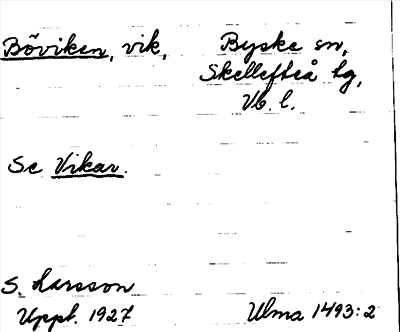 Böviken, vik, Byske sn,
Skellefteå tg,
Vb. l.
Se Vikar.
S. Larsson
Uppt. 1927 Ulma 1493:2